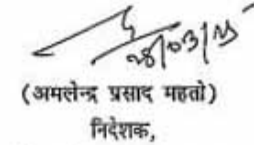 28/03/25
(अमलेन्द्र प्रसाद महतो)
निदेशक,